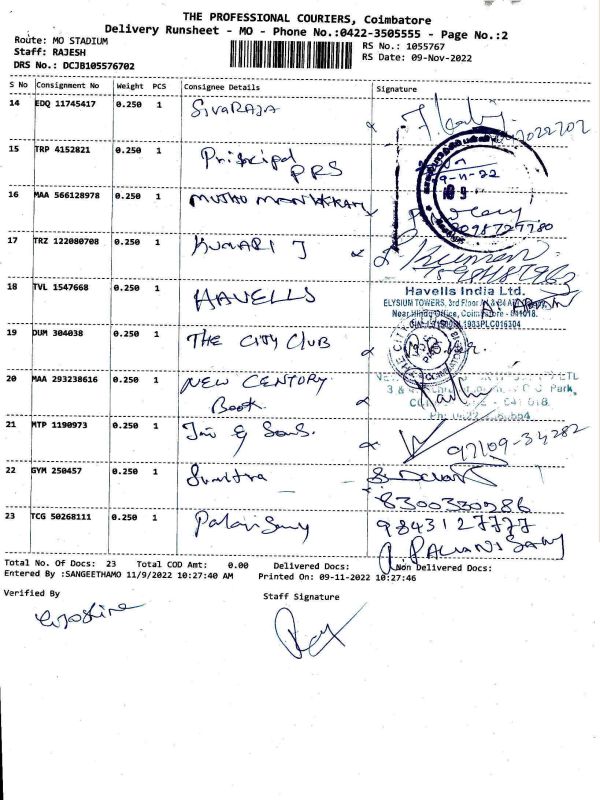 THE PROFESSIONAL COURIERS, Coimbatore
Delivery Runsheet - MO - Phone No.:0422-3505555 - Page No.:2
Route: MO STADIUM
Staff: RAJESH
DRS No.: DCJB105576702
RS No.: 1055767
RS Date: 09-Nov-2022
S No Consignment No Weight PCS Consignee Details Signature
14 EDQ 11745417 0.250 1 SIVARAJA
15 TRP 4152821 0.250 1 Principal PRS
9-11-22
16 MAA 566128978 0.250 1 MUTHU
17 TRZ 122080708 0.250 1 KUMARI J
18 TVL 1547668 0.250 1 HAVELLS
Havells India Ltd.
ELYSIUM TOWERS, 3rd Floor
Near Hindu Office, Coimbatore - 641018.
19 DUM 304038 0.250 1 THE CITY CLUB
20 MAA 293238616 0.250 1 NEW CENTORY
Book
21 MTP 1190973 0.250 1 & Sons.
97109-34282
22 GYM 250457 0.250 1 Sumitra
8300330586
23 TCG 50268111 0.250 1 Palani Samy 9843127777
PALANISAMY
Total No. Of Docs: 23 Total COD Amt: 0.00 Delivered Docs: Non Delivered Docs:
Entered By :SANGEETHAMO 11/9/2022 10:27:40 AM Printed On: 09-11-2022 10:27:46
Verified By Staff Signature